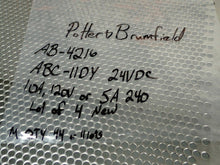 Potter & Brumfield
AB-4216
ABC-11DY 24VDC
10A, 120V or 5A 240
Lot of 4 New
M. QTY 44